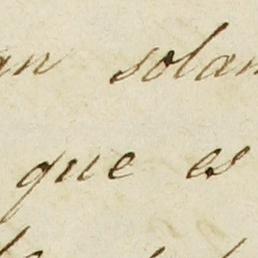 an solam
que es